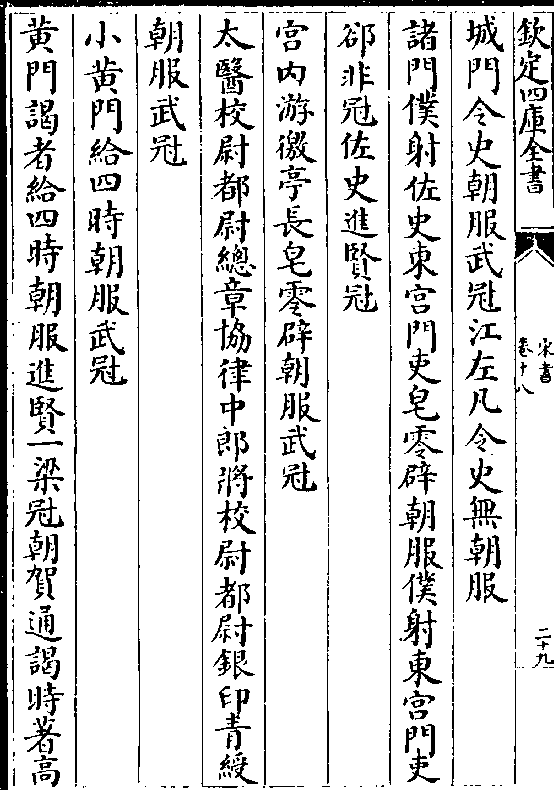 欽定四庫全書
宋書
卷十八
二十九
城門令史朝服武冠江左凡令史無朝服
諸門僕射佐史東宮門吏皂零辟朝服僕射東宮門吏
郤非冠佐史進賢冠
宮内游徼亭長皂零辟朝服武冠
太醫校尉都尉總章協律中郎將校尉都尉銀印青綬
朝服武冠
小黃門給四時朝服武冠
黃門謁者給四時朝服進賢一梁冠朝賀通謁時著高